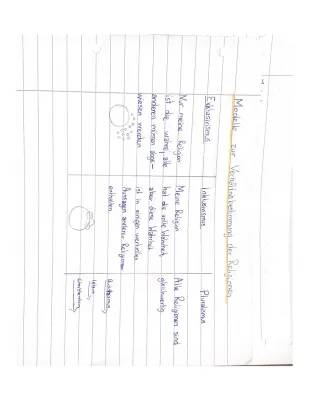 Modelle zur Verhältnisbestimmung der Religionen
Exklusivismus
Nur meine Religion
ist die wahre, alle
anderen müssen abge-
wiesen werden
Inklusivismus
Meine Religion
hat die volle Wahrheit,
aber diese Wahrheit
ist in einigen wertvollen
Aussagen anderer Religionen
enthalten.
Pluralismus
Alle Religionen sind
gleichwertig
Buddhismus
Islam
Christentum